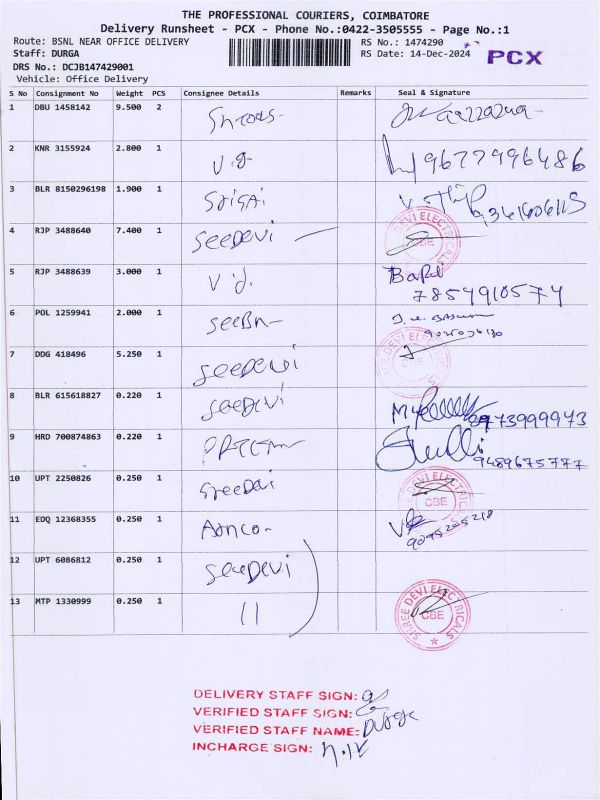 THE PROFESSIONAL COURIERS, COIMBATORE
Delivery Runsheet - PCX - Phone No.:0422-3505555 - Page No.:1
Route: BSNL NEAR OFFICE DELIVERY RS No.: 1474290
Staff: DURGA RS Date: 14-Dec-2024 PCX
DRS No.: DCJB147429001
Vehicle: Office Delivery
S No Consignment No Weight PCS Consignee Details Remarks Seal & Signature
1 DBU 1458142 9.500 2
2 KNR 3155924 2.800 1 9677996486
3 BLR 8150296198 1.900 1
4 RJP 3488640 7.400 1 SEEDEVI SHREE DEVI ELECTRICALS CBE
5 RJP 3488639 3.000 1 7854910574
6 POL 1259941 2.000 1
7 DDG 418496 5.250 1 SEEDEVI SHREE DEVI ELECTRICALS
8 BLR 615618827 0.220 1 SEEDEVI 8973999973
9 HRD 700874863 0.220 1 9489675777
10 UPT 2250826 0.250 1 SREEDEVI SHREE DEVI ELECTRICALS CBE
11 EDQ 12368355 0.250 1 9095205218
12 UPT 6086812 0.250 1 SEEDEVI
13 MTP 1330999 0.250 1 11 SHREE DEVI ELECTRICALS CBE
DELIVERY STAFF SIGN:
VERIFIED STAFF SIGN:
VERIFIED STAFF NAME: Durga
INCHARGE SIGN: